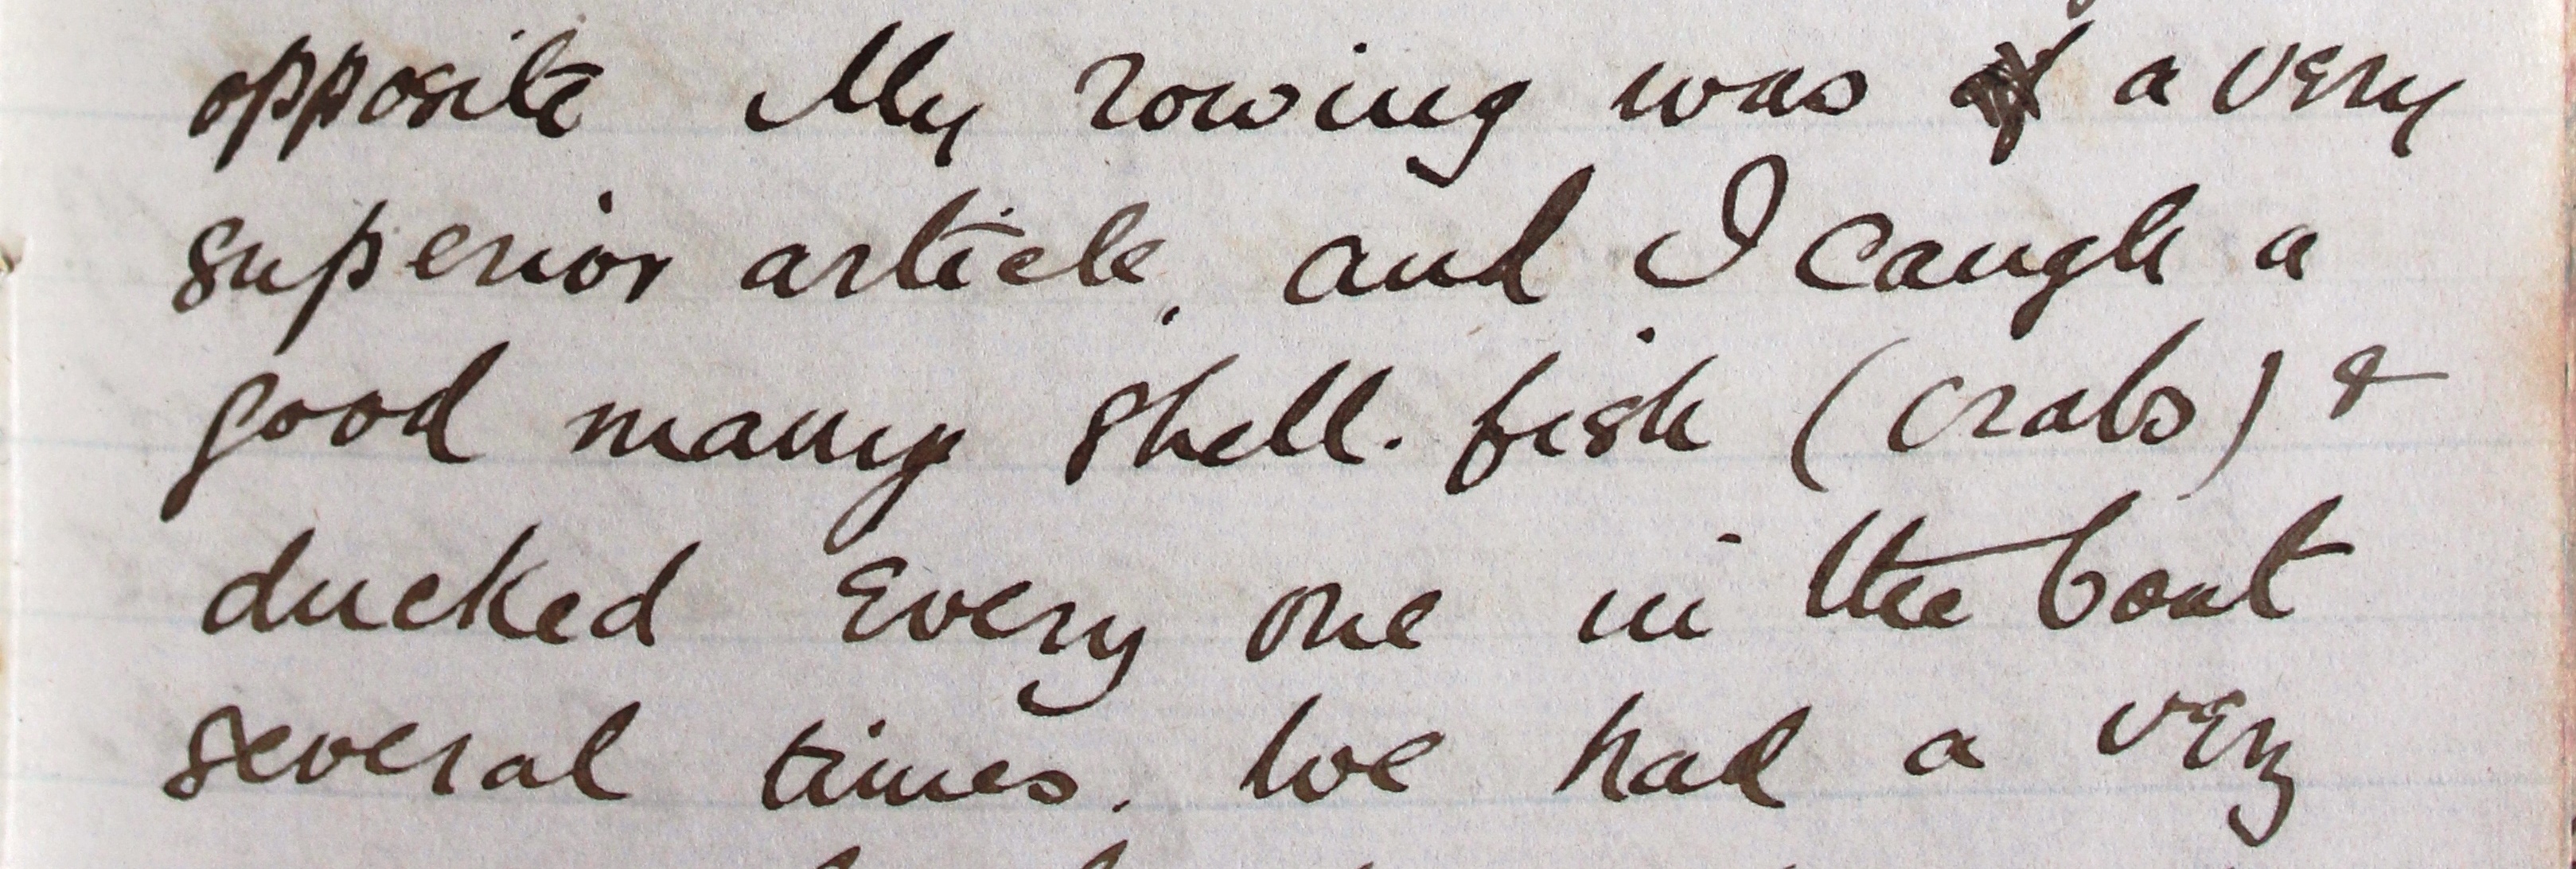 opposite My rowing was a very
superior article, and I caught a
good many shell-fish (crabs) &
ducked every one in the boat
several times. We had a very